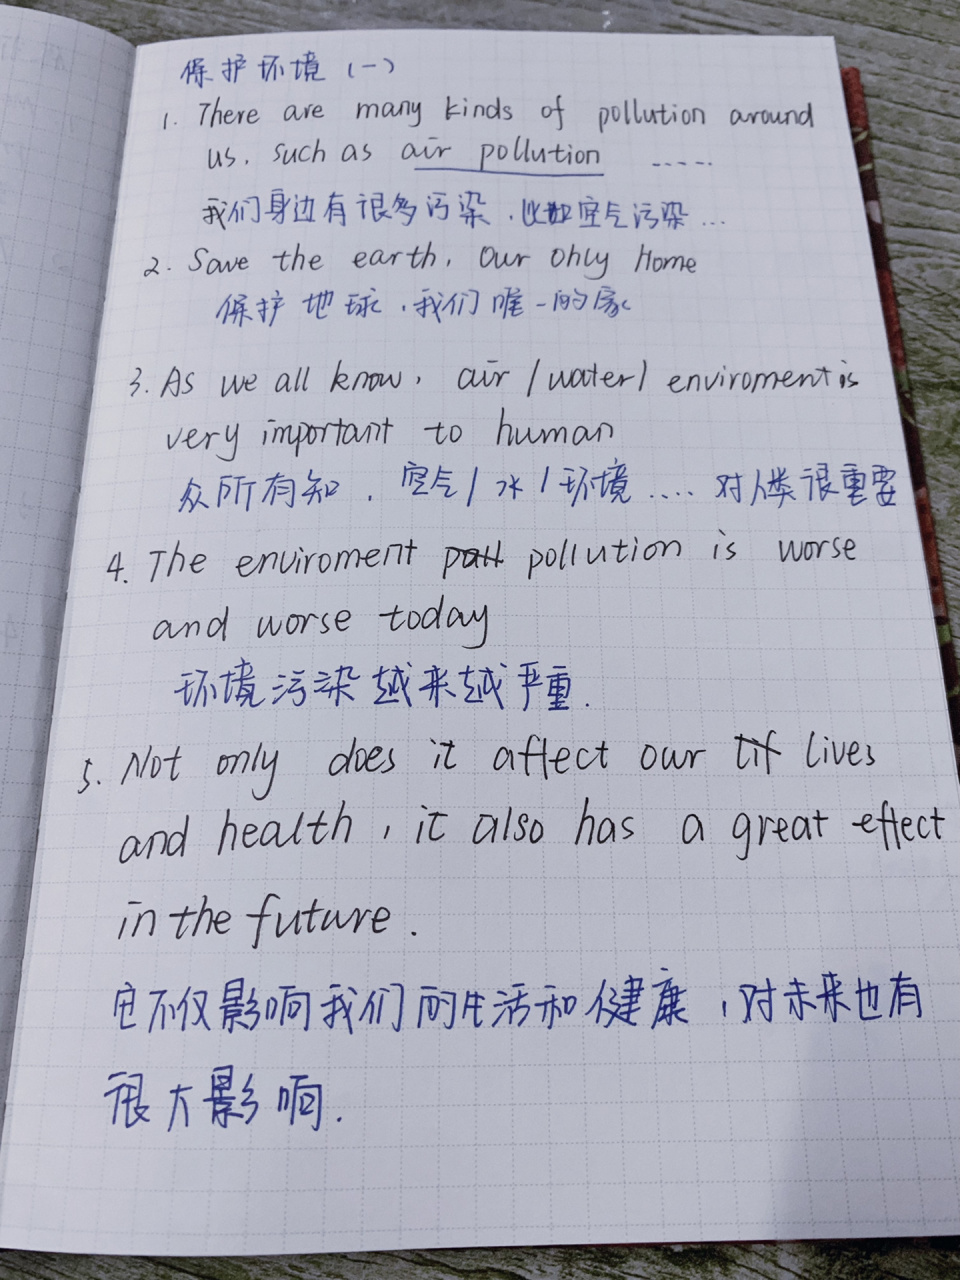 保护环境(一)
1. There are many kinds of pollution around
us, such as air pollution ......
我们身边有很多污染,比如空气污染...
2. Save the earth, Our Only Home
保护地球,我们唯一的家
3. As we all know, air /water/ enviroment is
very important to human
众所有知,空气/水/环境....对人类很重要
4. The enviroment pollution is worse
and worse today
环境污染越来越严重.
5. Not only does it affect our lives
and health, it also has a great effect
in the future.
它不仅影响我们的生活和健康,对未来也有
很大影响.